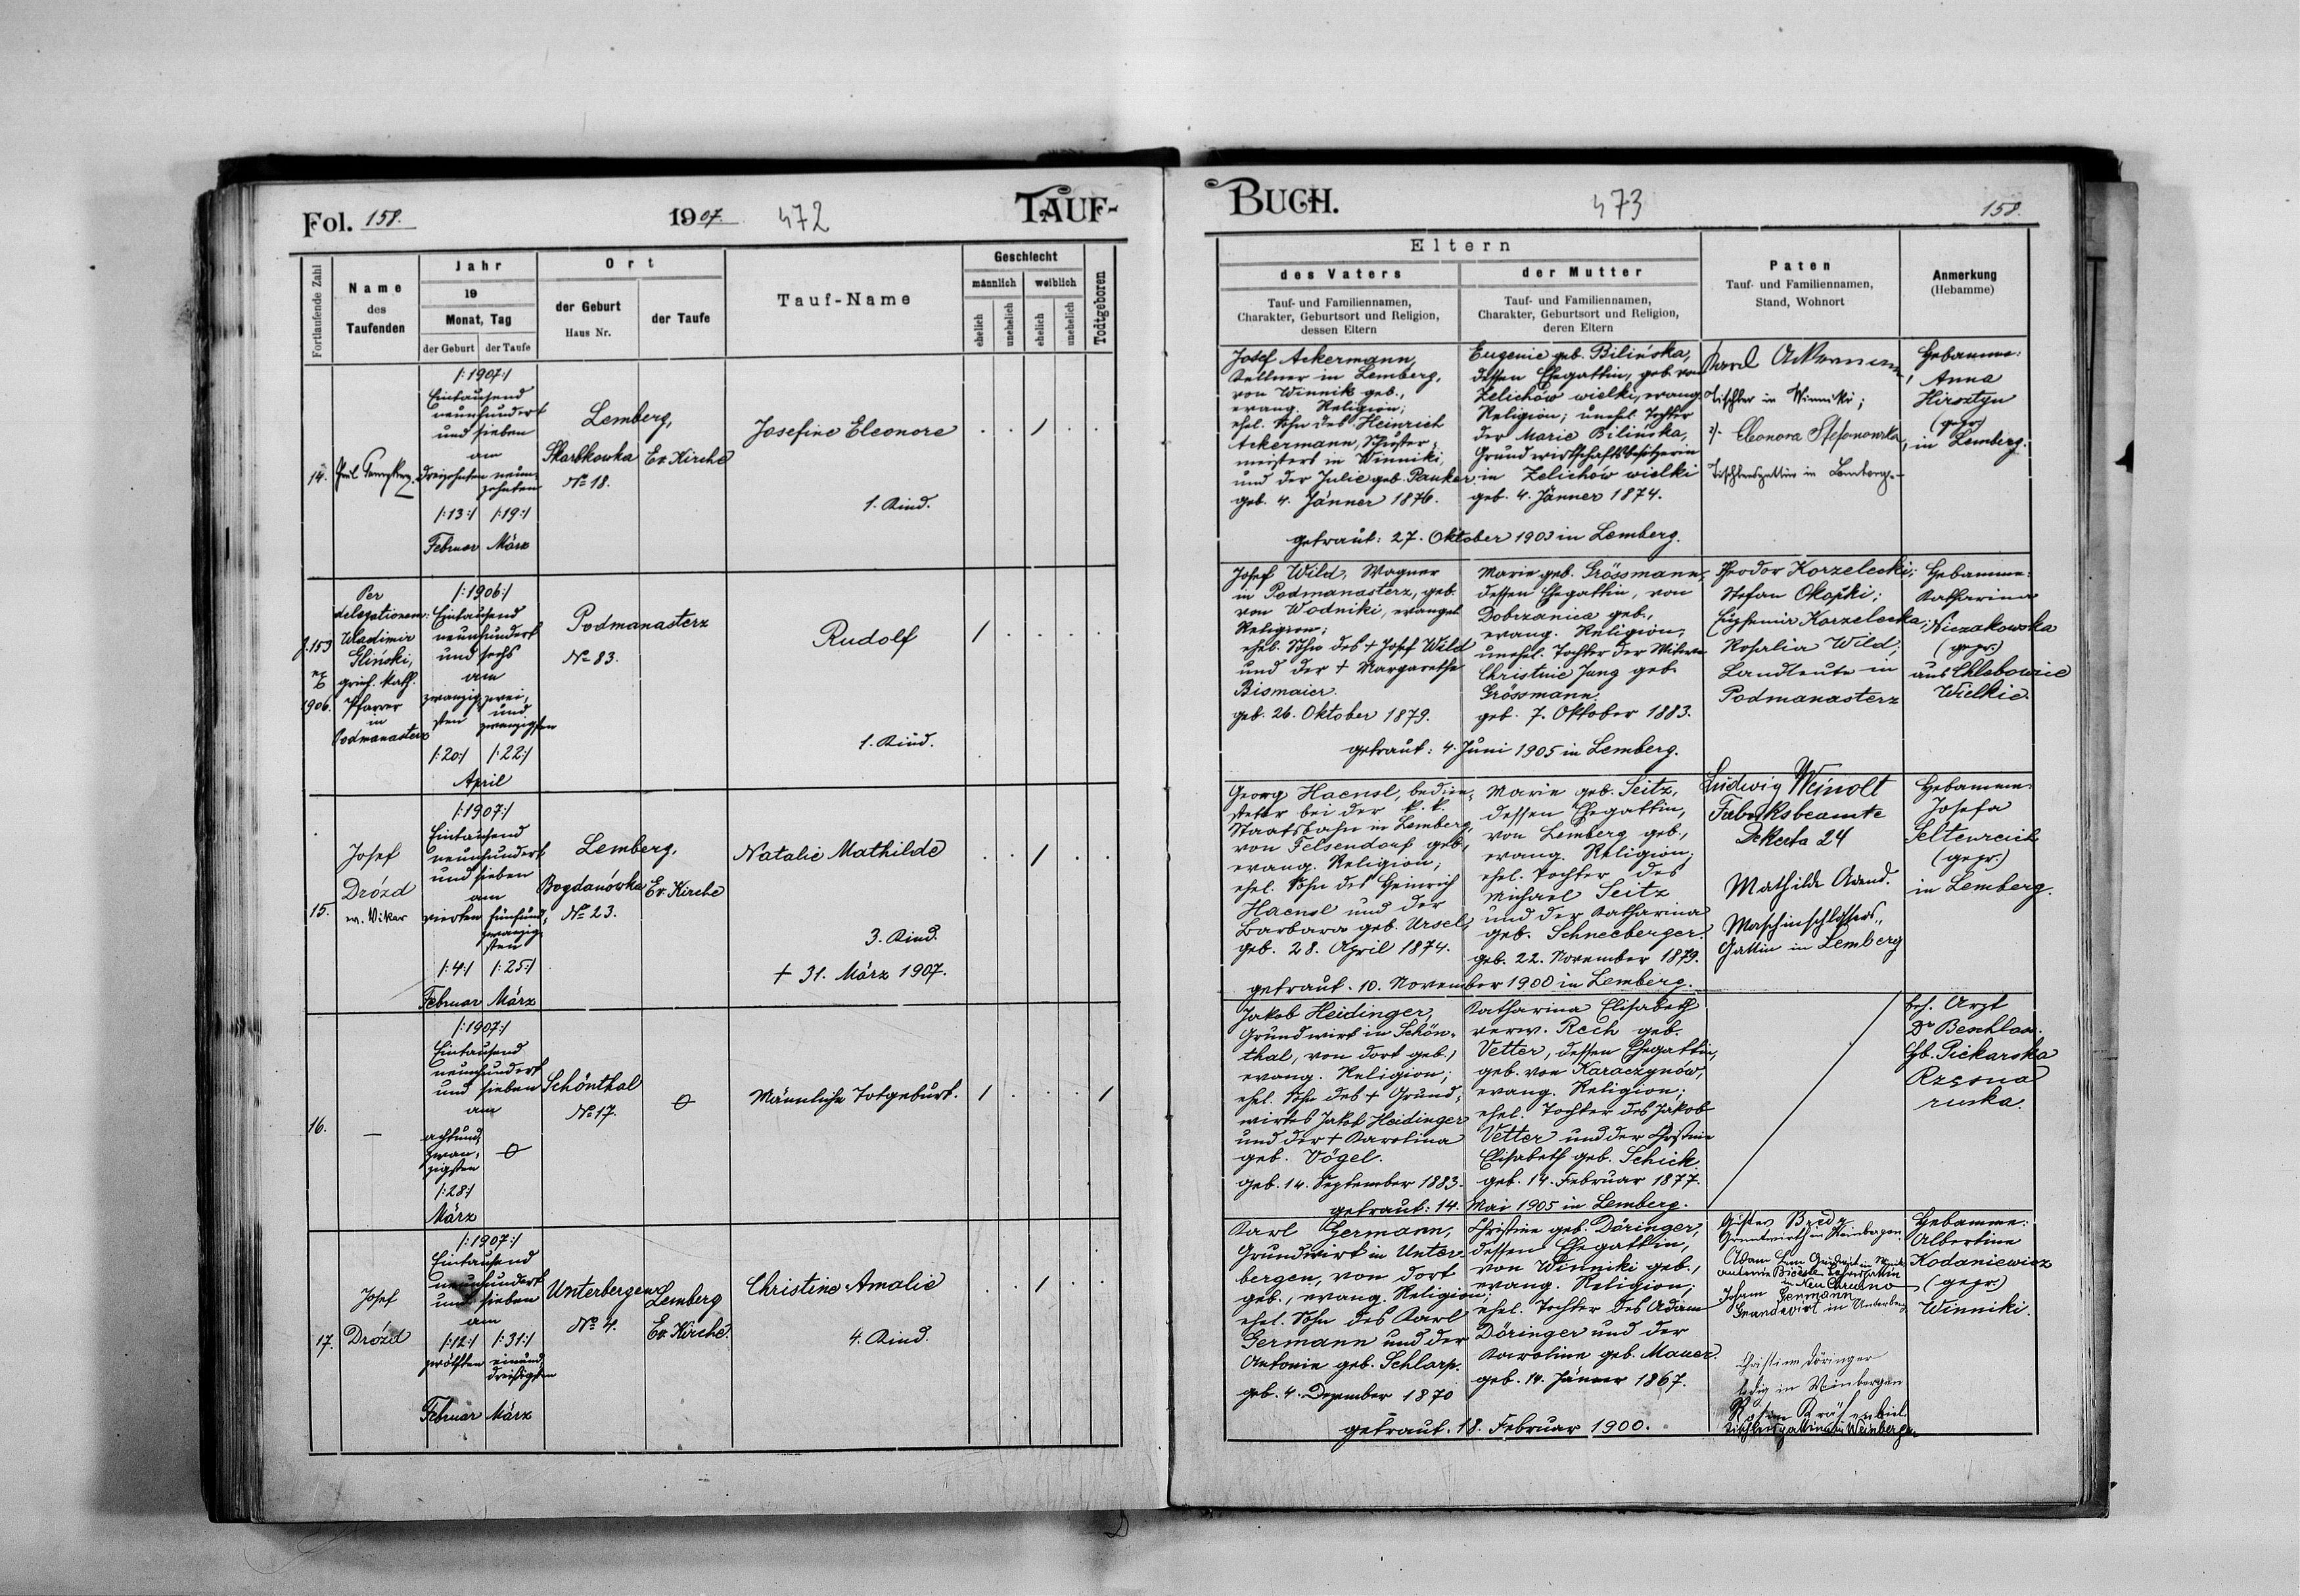 Fol. 158.
1907.
472
TAUF-
Fortlaufende Zahl
Name
des
Taufenden
Jahr
19
Monat, Tag
der Geburt
der Taufe
Ort
der Geburt
Haus Nr.
der Taufe
Tauf-Name
Geschlecht
männlich
weiblich
ehelich
unehelich
ehelich
unehelich
Todtgeboren
14.
/:1907:/
Eintausend
neunhundert
und sieben
am
dreizehnten
neun-
zehnten
/:13:/ /:19:/
Februar März
Lemberg,
Skarbkowka
No 18.
Ev. Kirche
Josefine Eleonore
1. Kind.
J. 153
ex
1906.
Per
delegationem:
Wladimir
Gliński,
griech. kath.
Pfarrer
in
Podmanasterz
/:1906:/
Eintausend
neunhundert
und sechs
am
zwanzig-
sten
zwei-
und
zwanzigsten
/:20:/ /:22:/
April
Podmanasterz
No 83.
Rudolf
1. Kind.
15.
Josef
Drózd
ev. Vikar
/:1907:/
Eintausend
neunhundert
und sieben
am
vierten
fünfund-
zwanzig-
sten
/:4:/ /:25:/
Februar März
Lemberg,
Bogdanówka
No 23.
Ev. Kirche
Natalie Mathilde
3. Kind.
† 31. März 1907.
16.
—
/:1907:/
Eintausend
neunhundert
und sieben
am
achtund-
zwan-
zigsten
/:28:/
März
Schönthal
No 17.
Männliche Totgeburt.
17.
Josef
Drózd
/:1907:/
Eintausend
neunhundert
und sieben
am
/:12:/ /:31:/
zwölften
einund-
dreißigsten
Februar März
Unterbergen
No 4.
Lemberg
Ev. Kirche.
Christine Amalie
4. Kind.
BUCH.
473
158.
Eltern
des Vaters
Tauf- und Familiennamen,
Charakter, Geburtsort und Religion,
dessen Eltern
der Mutter
Tauf- und Familiennamen,
Charakter, Geburtsort und Religion,
deren Eltern
Paten
Tauf- und Familiennamen,
Stand, Wohnort
Anmerkung
(Hebamme)
Josef Ackermann,
Kellner in Lemberg,
von Winnik geb.,
evang. Religion;
ehel. Sohn des Heinrich
Ackermann, Schuster-
meisters in Winniki,
und der Julie geb. Pauker
geb. 4. Jänner 1876.
Eugenie geb. Bilińska,
dessen Ehegattin, geb. von
Zelichów wielki, evang.
Religion; unehel. Tochter
der Marie Bilińska,
Grundwirtschaftsbesitzerin
in Zelichów wielki
geb. 4. Jänner 1874.
getraut: 27. Oktober 1903 in Lemberg.
Karol Ackermann,
Tischler in Winniki;
Eleonora Stefanowska,
in Lemberg.
Hebamme:
Anna
Hirsztyn
(gepr.)
in Lemberg.
Josef Wild, Wagner
in Podmanasterz, geb.
von Wodniki, evangel.
Religion;
ehel. Sohn des † Josef Wild
und der † Margarethe
Bismaier.
geb. 26. Oktober 1879.
Marie geb. Grössmann,
dessen Ehegattin, von
Dobrzanica geb.,
evang. Religion,
unehel. Tochter der Witwe
Christine Jung geb.
Grössmann.
geb. 7. Oktober 1883.
getraut: 4. Juni 1905 in Lemberg.
Theodor Korzelecki;
Stefan Okopki;
Eufemia Korzelecka;
Rosalia Wild;
Landleute in
Podmanasterz
Hebamme:
Katharina
Niezakowska
(gepr.)
aus Chlebowice
Wielkie.
Georg Haensl, bedien-
steter bei der k. k.
Staatsbahn in Lemberg,
von Felsendorf geb.,
evang. Religion;
ehel. Sohn des Heinrich
Haensl und der
Barbara geb. Ursel,
geb. 28. April 1874.
Marie geb. Seitz,
dessen Ehegattin,
von Lemberg geb.,
evang. Religion;
ehel. Tochter des
Michael Seitz
und der Katharina
geb. Schneeberger.
geb. 22. November 1879.
getraut. 10. November 1900 in Lemberg.
Ludwig Weinolt
Fabriksbeamte
Dekerta 24
Mathilde Arend.
Maschinschlossers-
Gattin in Lemberg
Hebamme:
Josefa
Seltenreich
(gepr.)
in Lemberg.
Jakob Heidinger,
Grundwirt in Schön-
thal, von dort geb.,
evang. Religion;
ehel. Sohn des † Grund-
wirtes Jakob Heidinger
und der † Karolina
geb. Vögel.
geb. 14. September 1883.
Katharina Elisabeth
verw. Rech geb.
Vetter, dessen Ehegattin,
geb. von Karaczynów,
evang. Religion;
ehel. Tochter des Jakob
Vetter und der Christine
Elisabeth geb. Schick.
geb. 14. Februar 1877.
getraut: 14. Mai 1905 in Lemberg.
Arzt
Dr Beschloss.
Hb. Piekarska
Rzęsna
ruska.
Karl Germann,
Grundwirt in Unter-
bergen, von dort
geb., evang. Religion;
ehel. Sohn des Karl
Germann und der
Antonie geb. Schlarp.
geb. 4. Dezember 1870
Christine geb. Döringer,
dessen Ehegattin,
von Winniki geb.,
evang. Religion;
ehel. Tochter des Adam
Döringer und der
Karoline geb. Mauer.
geb. 14. Jänner 1867.
getraut. 18. Februar 1900.
Gustav Bredy
Grundwirth in Weinbergen
Adam
Johann Germann
Grundwirt in Unterberg
Christine Döringer
ledig in Weinbergen
in Weinbergen
Hebamme:
Albertine
Kodaniewicz
(gepr.)
Winniki.